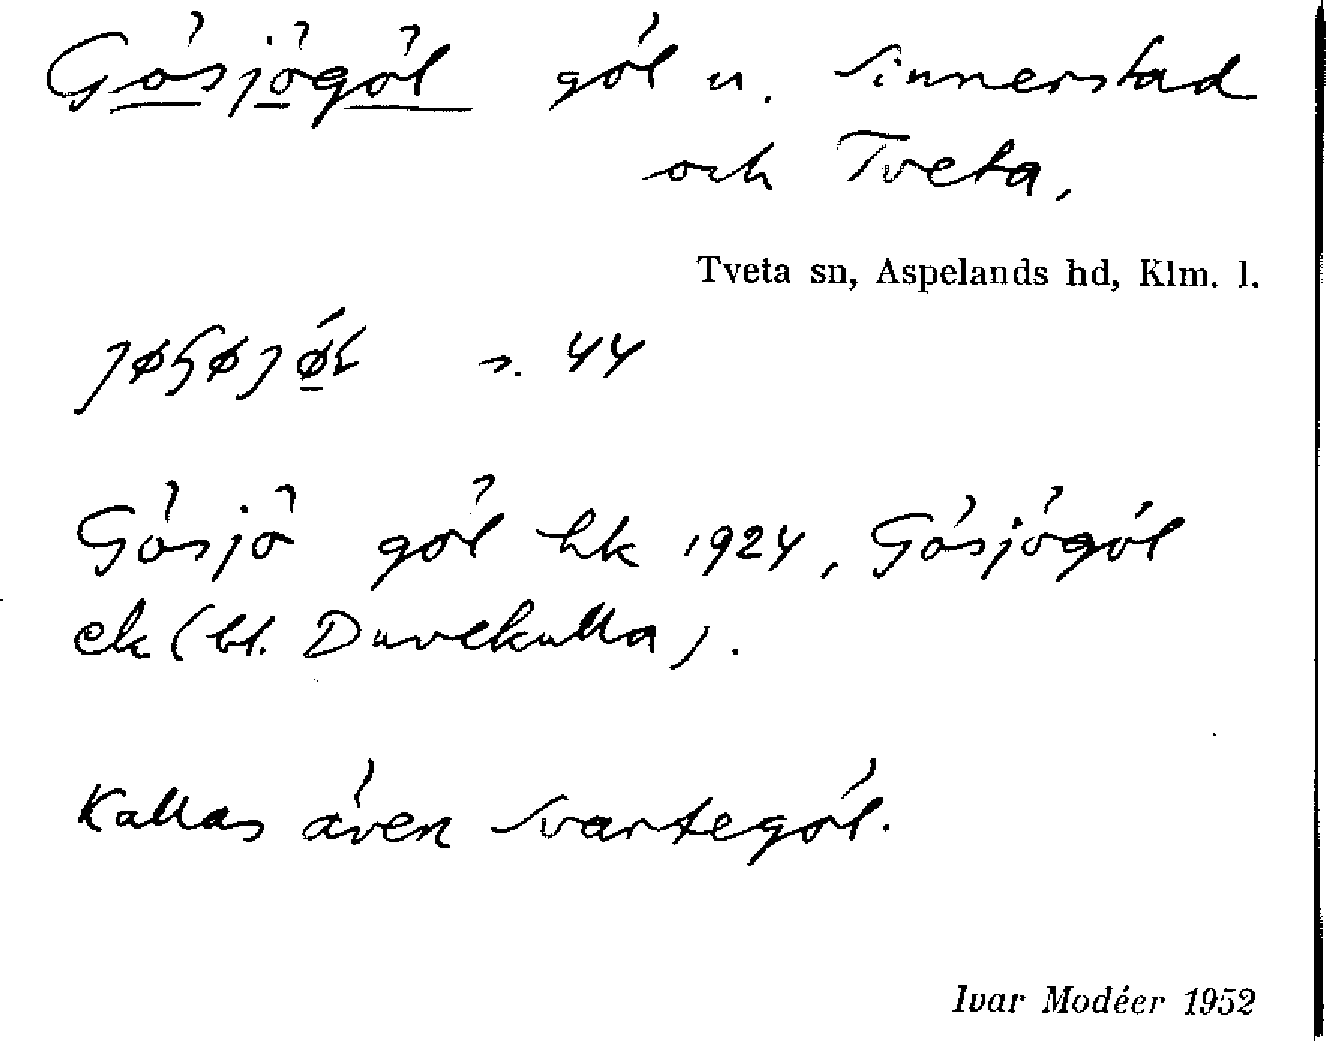 Gösjögöl göl n. Sinnerstad
och Tveta,
Tveta sn, Aspelands hd, Klm. l.
s. 44
Gösjö göl hk 1924, Gösjögöl
ek (bl. Duvekulla).
Kallas även Svartegöl.
Ivar Modéer 1952